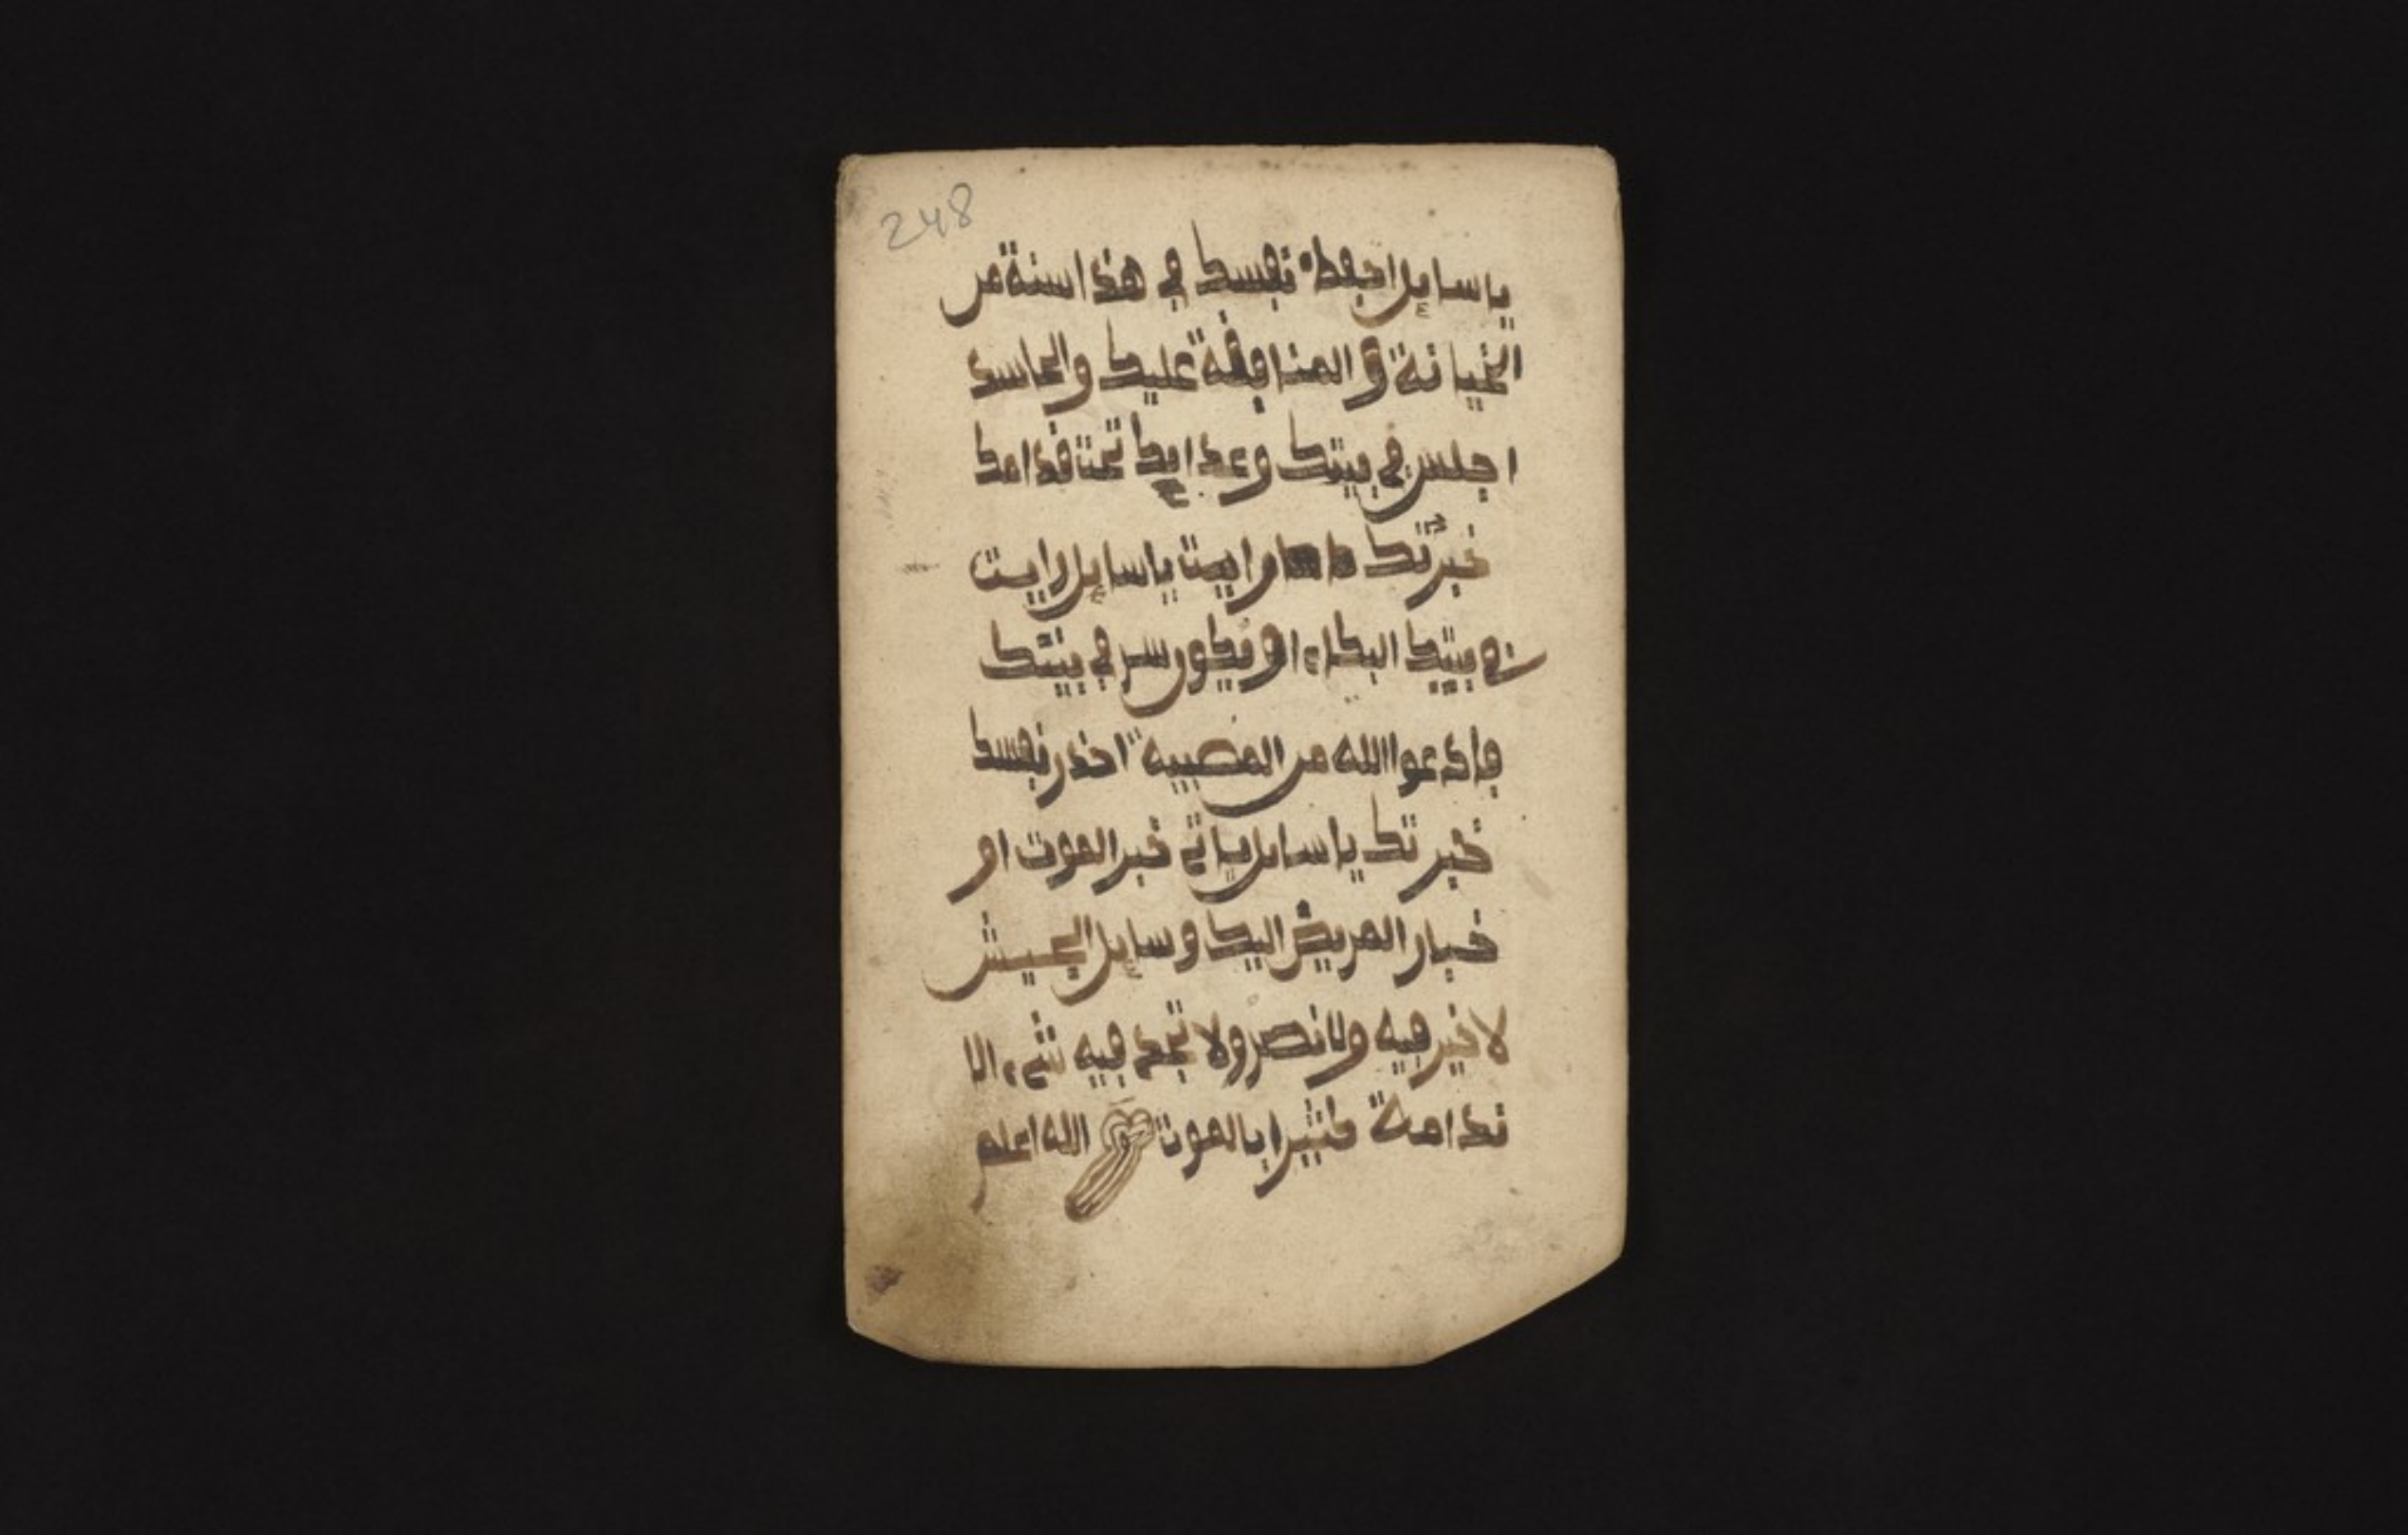 248
يا سايل احفظ نفسك في هذا سنة من
الخيانة و المنافقة عليك والحاسد
اجلس في بيتك وعدايك تحت قدامك
خبرتك يا سايل رايت
في بيتك البكاء او فيكون سر في بيتك
فادعوا الله من المصيبه احذر نفسك
خبرتك يا سايل ياتي خبر الموت او
خبار المريض اليك و سايل الجيش
لا خير فيه ولا نصر ولا تجد فيه شيء الا
ندامة كثيرا بالموت الله اعلم